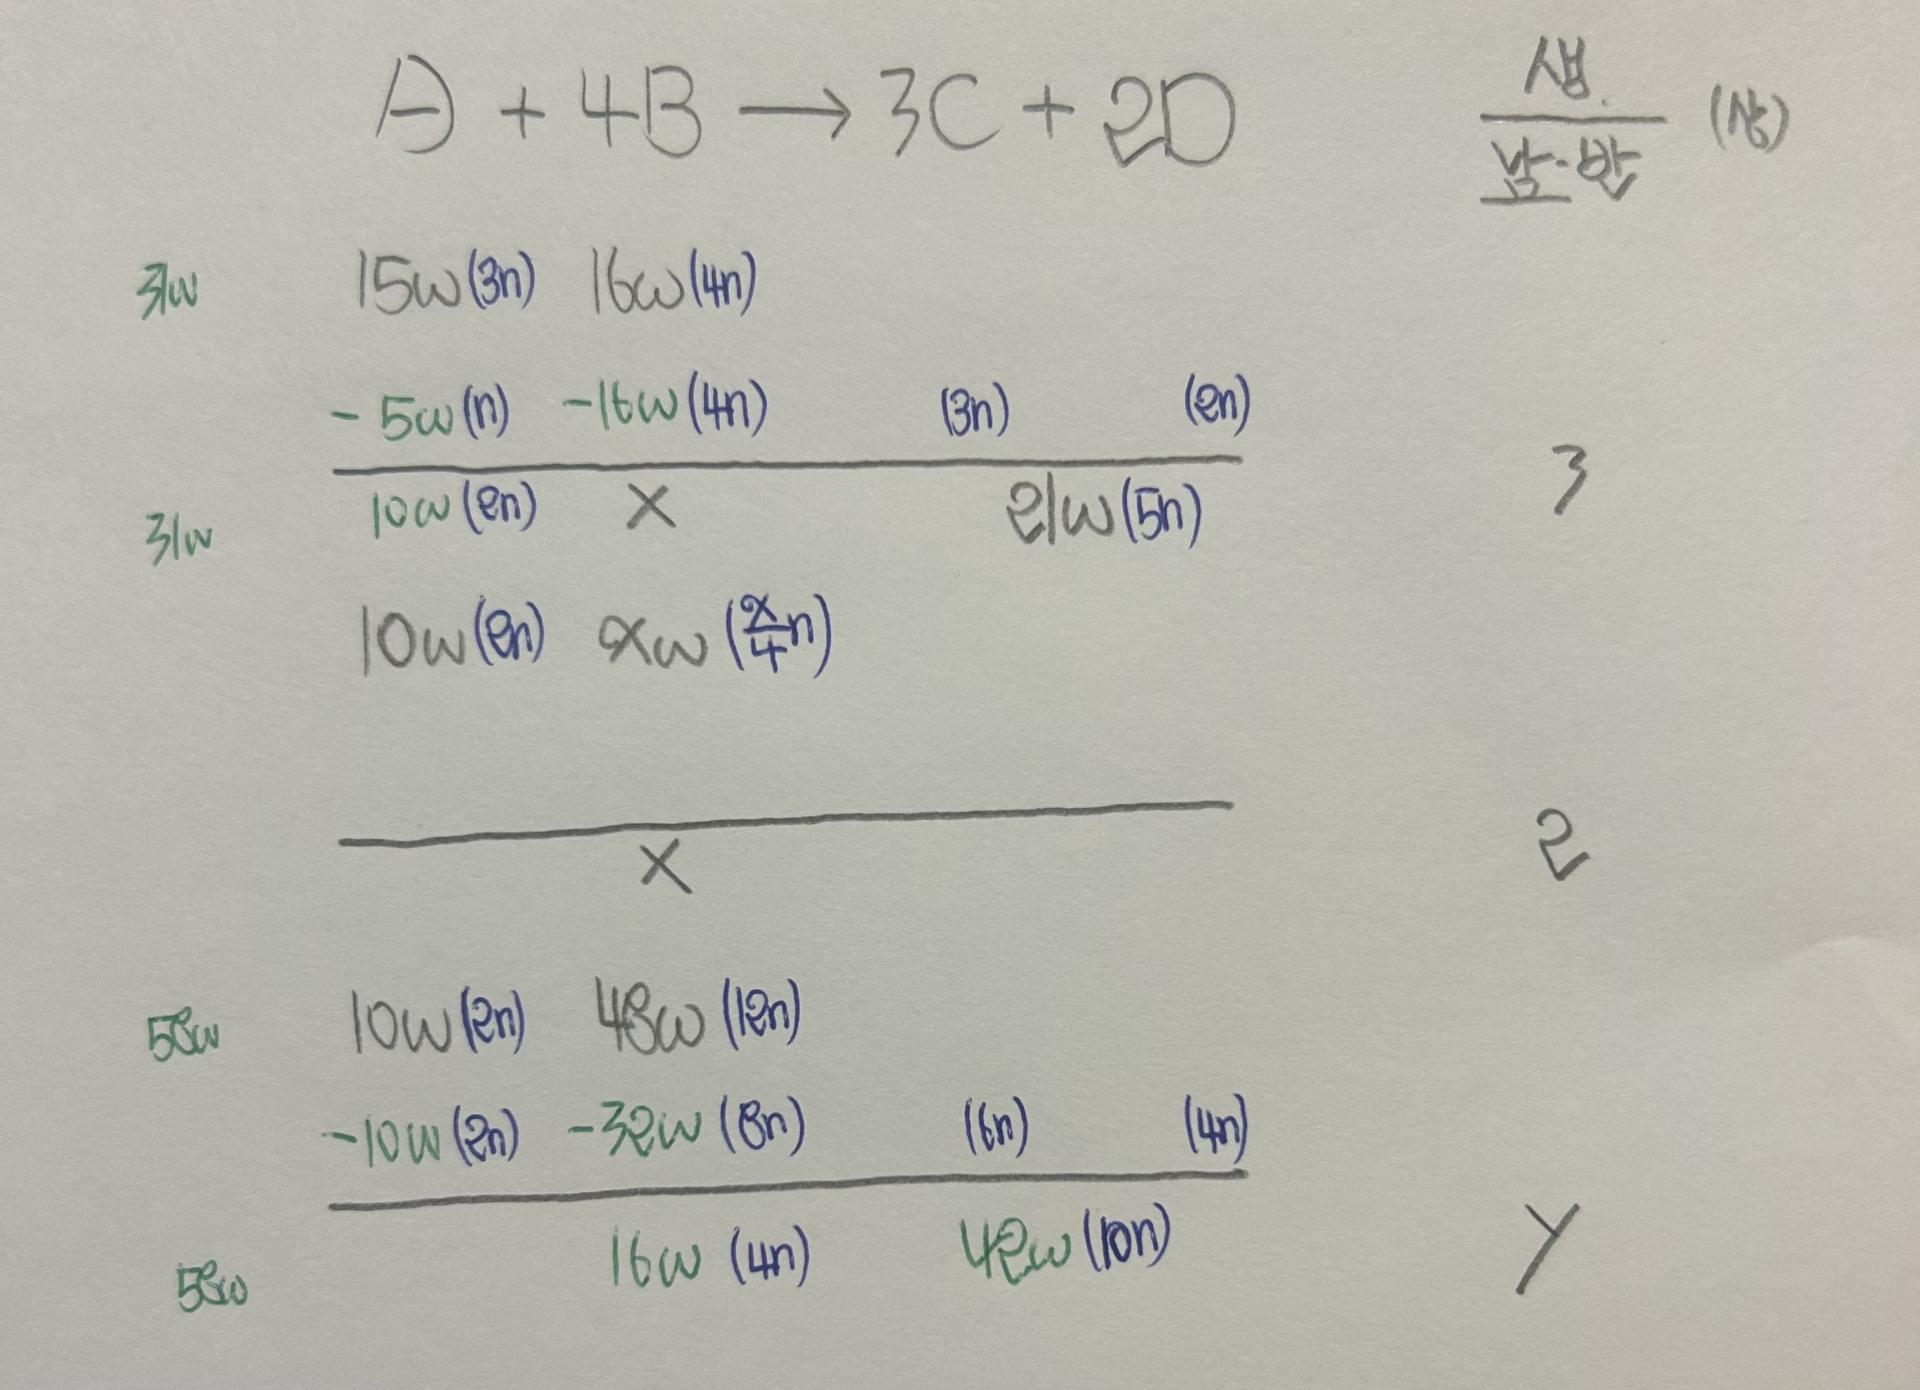 A + 4B → 3C + 2D 생. / 남·반 (상)
31w 15w(3n) 16w(4n)
-5w(n) -16w(4n) (3n) (2n)
31w 10w(2n) X 21w(5n) 3
10w(2n) xw(x/4 n)
X 2
58w 10w(2n) 48w(12n)
-10w(2n) -32w(8n) (6n) (4n)
58w 16w(4n) 42w(10n) y